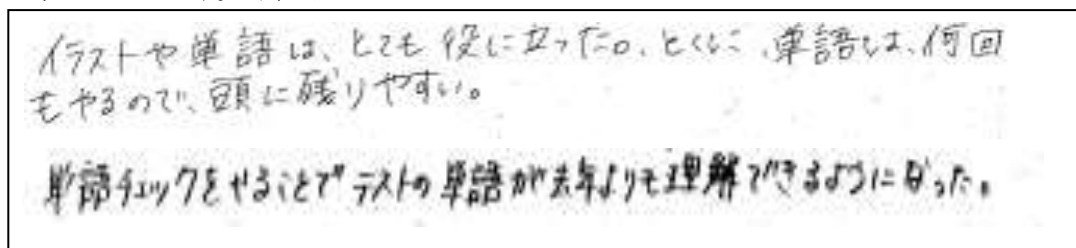 イラストや単語は、とても役に立った。とくに、単語は、何回
もやるので、頭に残りやすい。
単語チェックをやることでテストの単語が去年よりも理解できるようになった。